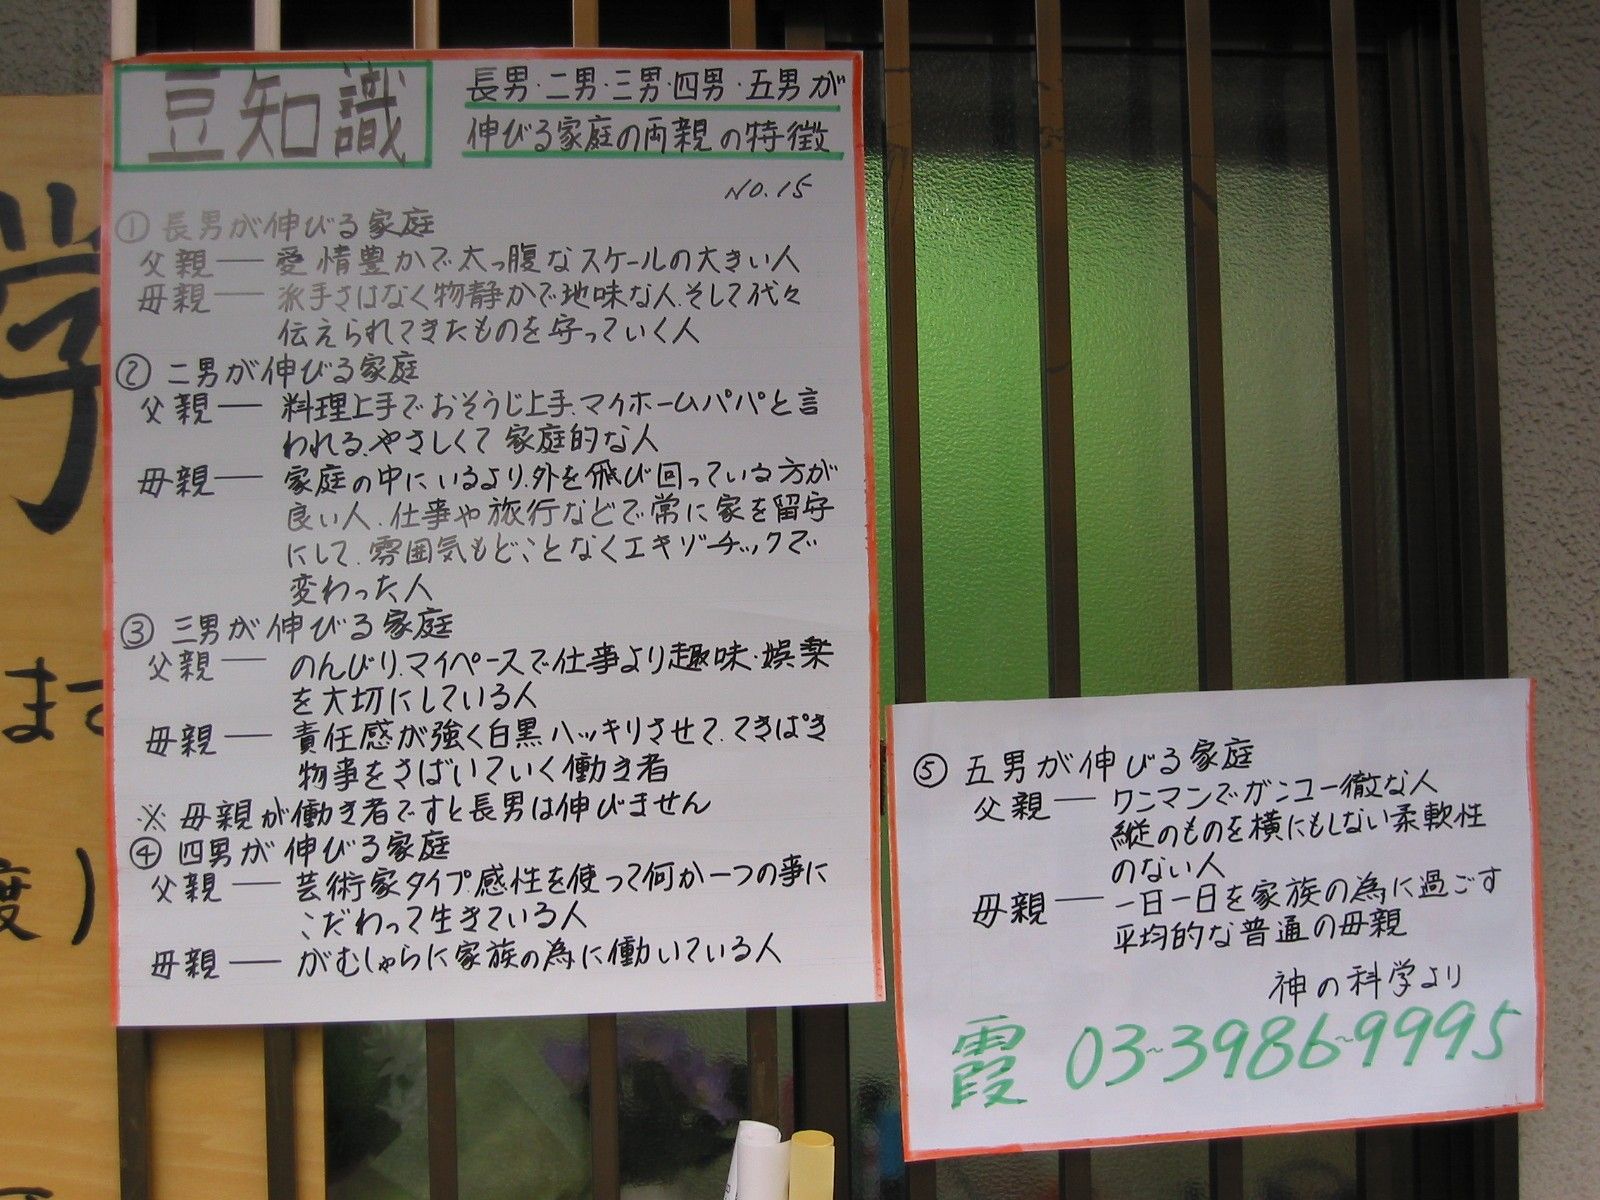 豆知識
長男・二男・三男・四男・五男が
伸びる家庭の両親の特徴
NO.15
① 長男が伸びる家庭
父親 ― 愛情豊かで太っ腹なスケールの大きい人
母親 ― 派手さはなく物静かで地味な人.そして代々
伝えられてきたものを守っていく人
② 二男が伸びる家庭
父親 ― 料理上手でおそうじ上手.マイホームパパと言
われる.やさしくて家庭的な人
母親 ― 家庭の中にいるより.外を飛び回っている方が
良い人.仕事や旅行などで常に家を留守
にして.雰囲気もどことなくエキゾチックで
変わった人
③ 三男が伸びる家庭
父親 ― のんびり.マイペースで仕事より趣味・娯楽
を大切にしている人
母親 ― 責任感が強く白黒ハッキリさせて.てきぱき
物事をさばいていく働き者
※ 母親が働き者ですと長男は伸びません
④ 四男が伸びる家庭
父親 ― 芸術家タイプ.感性を使って何か一つの事に
こだわって生きている人
母親 ― がむしゃらに家族の為に働いている人
⑤ 五男が伸びる家庭
父親 ― ワンマンでガンコ一徹な人
縦のものを横にもしない柔軟性
のない人
母親 ― 一日一日を家族の為に過ごす
平均的な普通の母親
神の科学より
霞 03-3986-9995
学
ます
度)